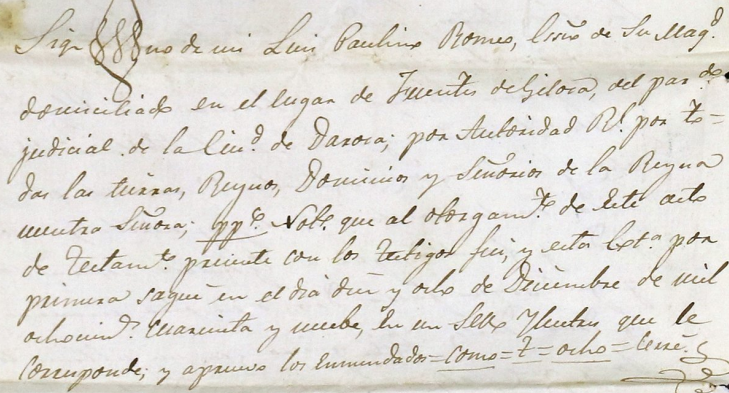 Sig no de mi Luis Paulino Romeo, Essno de Su Mag.d
domiciliado en el lugar de Fuentes de Giloca, del par.do
judicial de la Ciu.d de Daroca; por Autoridad R.l por to=
das las tierras, Reynos, Dominios y Señorios de la Reyna
nuestra Señora; pp.co Not.o que al otorgam.to de este acto
de Testam.to presente con los testigos fui, y esta Ext.a por
primera saqué en el dia diez y ocho de Diciembre de mil
ochocien.s cuarenta y nuebe, en un Sello Ylustres que le
Corresponde; y apruevo los enmendados=como=t=ocho=Cerré